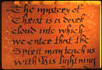 The mystery of
Christ is a dark
cloud into which
we enter that the
Spirit may teach us
with His lightning